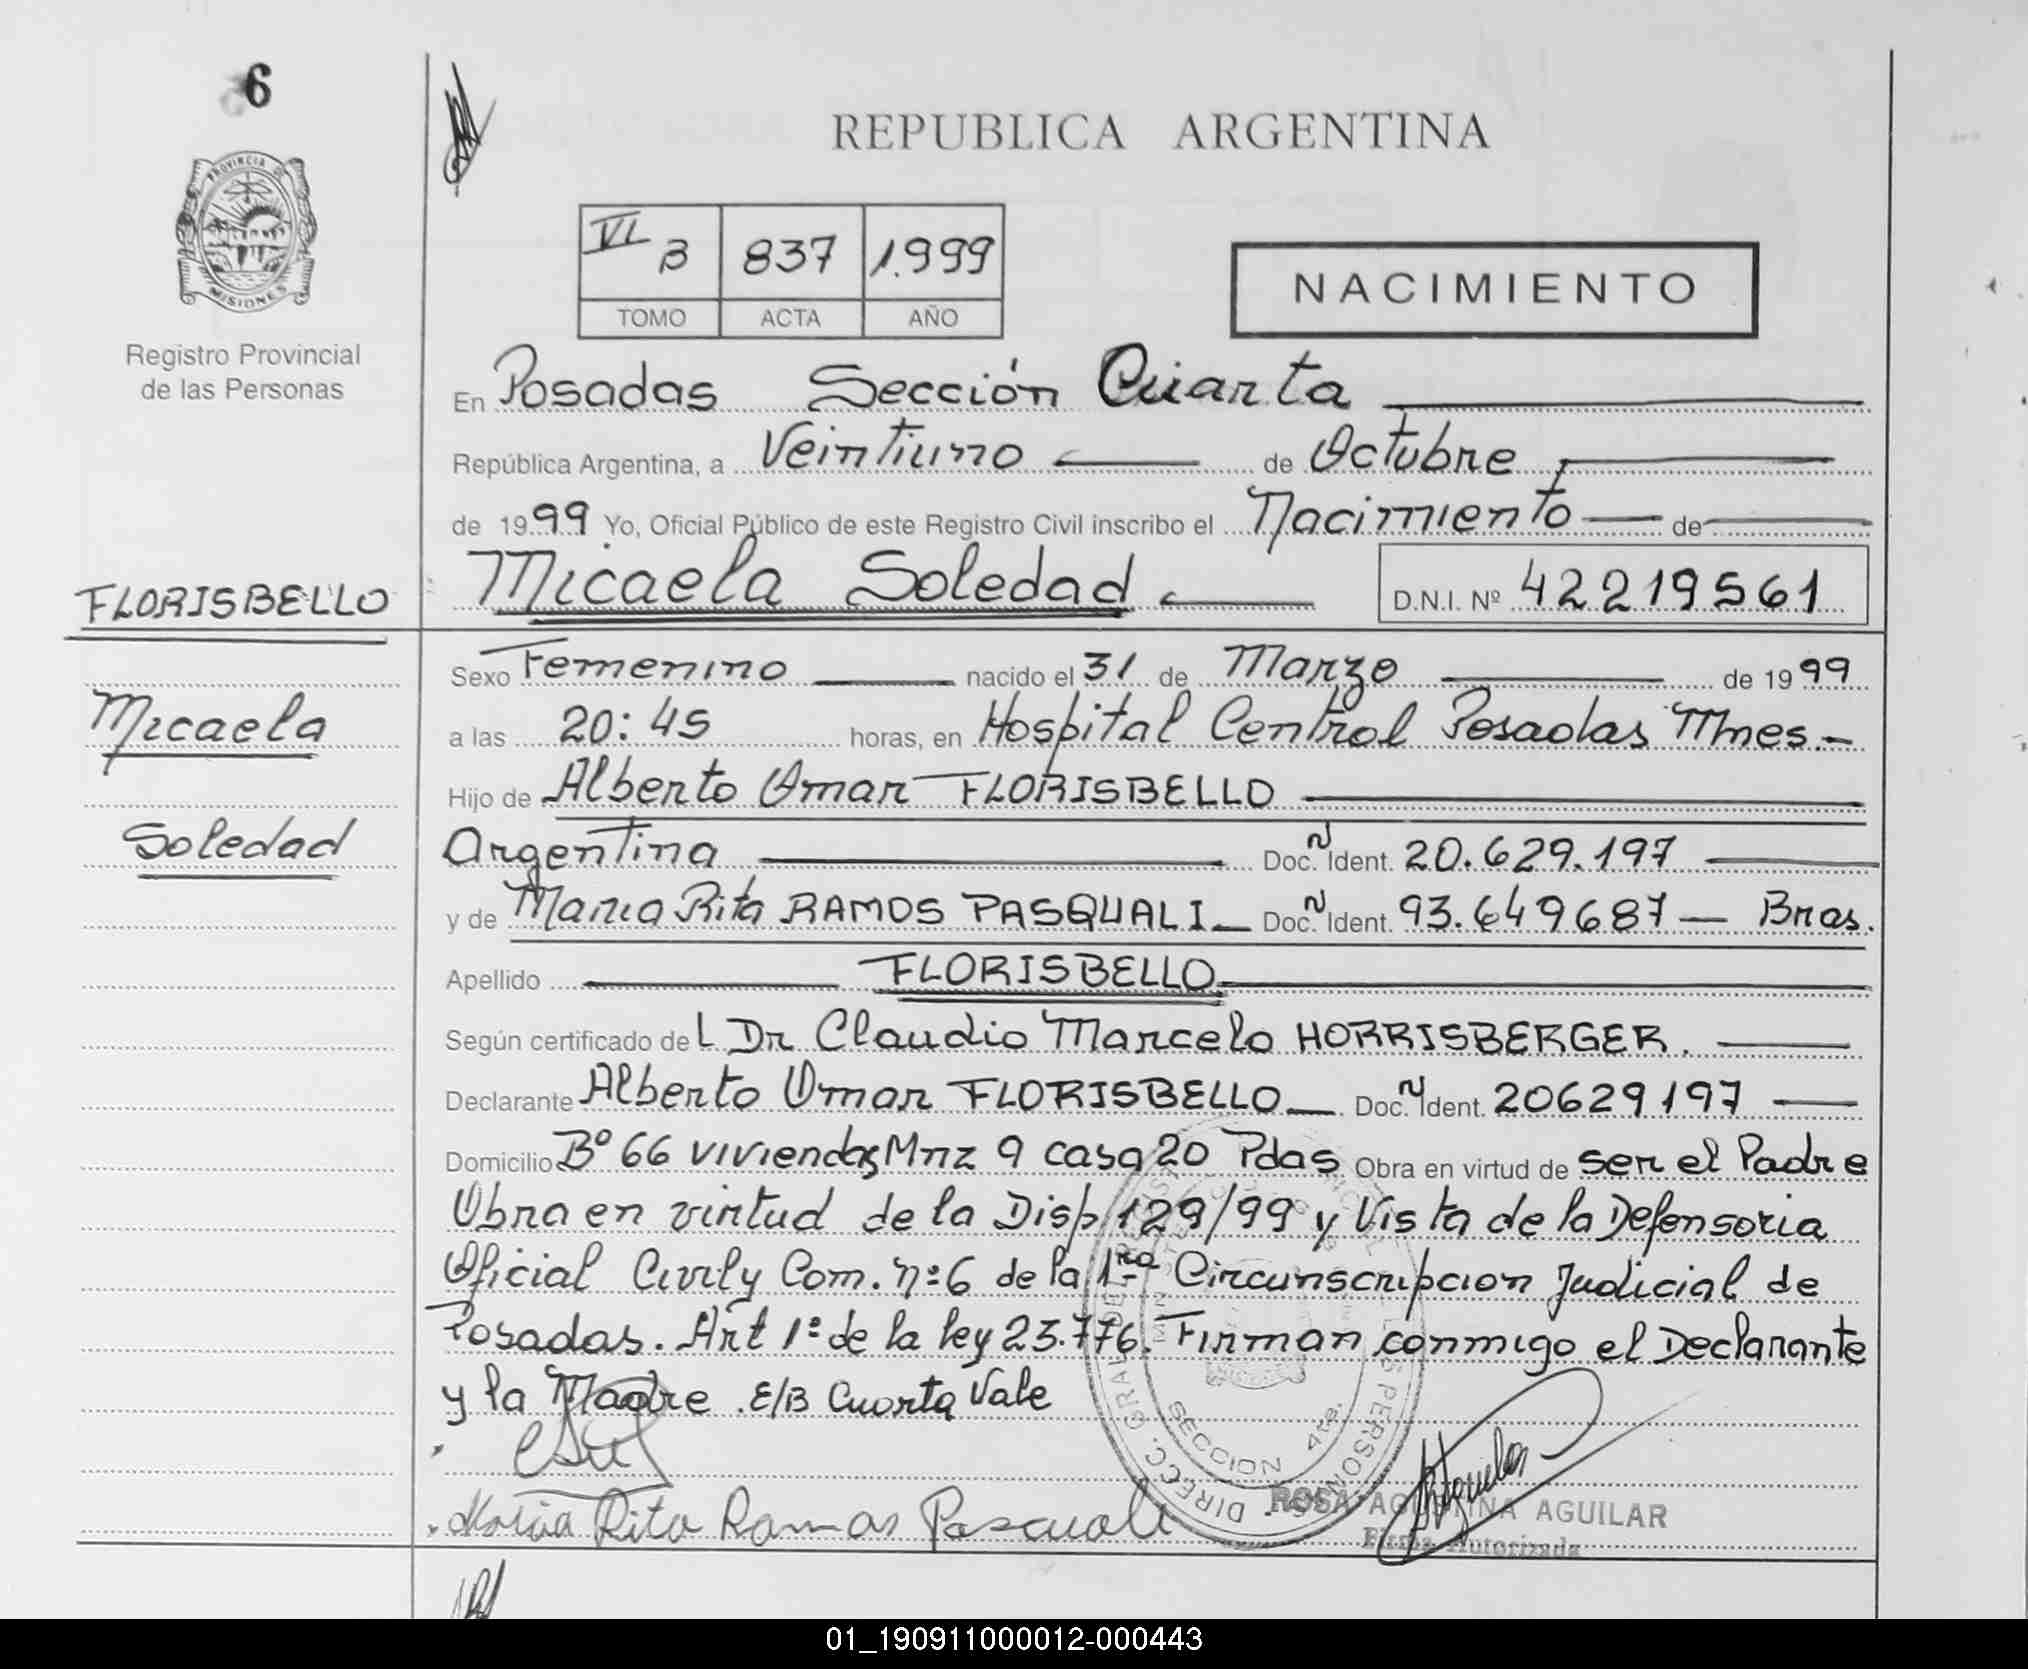 6
REPUBLICA ARGENTINA
PROVINCIA DE
MISIONES
VI B 837 1.999
TOMO ACTA AÑO
NACIMIENTO
Registro Provincial
de las Personas
En Posadas Sección Cuarta
República Argentina, a Veintiuno de Octubre
de 1999 Yo, Oficial Público de este Registro Civil inscribo el Nacimiento de
FLORISBELLO
Micaela Soledad
D.N.I. Nº 42219561
Sexo Femenino nacido el 31 de Marzo de 1999
Micaela
a las 20:45 horas, en Hospital Central Posadas Mnes.-
Hijo de Alberto Omar FLORISBELLO
Soledad
Argentina Doc. Nº Ident. 20.629.197
y de Maria Rita RAMOS PASQUALI Doc. Nº Ident. 93.649687 - Bras.
Apellido FLORISBELLO
Según certificado del Dr Claudio Marcelo HORRISBERGER.
Declarante Alberto Omar FLORISBELLO Doc. Nº Ident. 20629197
Domicilio Bº 66 viviendas Mnz 9 casa 20 Pdas Obra en virtud de ser el Padre
Obra en virtud de la Disp 129/99 y Vista de la Defensoria
Oficial Civil y Com. nº 6 de la 1ra Circunscripcion Judicial de
Posadas. Art 1º de la ley 23.776. Firman conmigo el Declarante
y la Madre. E/B Cuarta Vale
Maria Rita Ramos Pascuali
SECCION 4ta.
ROSA AGUSTINA AGUILAR
Firma Autorizada
01_190911000012-000443